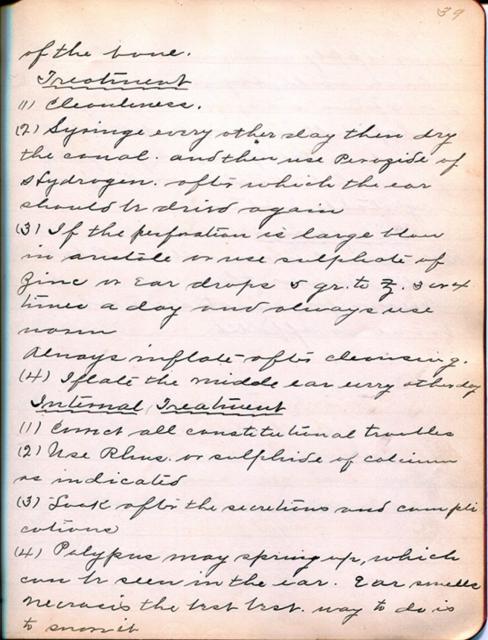 39
of the bone.
Treatment
(1) Cleanliness.
(2) Syringe every other day then dry
the canal. and then use Peroxide of
Hydrogen. after which the ear
should be dried again
(3) If the perforation is large blow
in or use sulphate of
Zinc or Ear drops 5 gr. to ℥. 3 or 4
times a day and always use
warm
Always inflate after cleansing.
(4) Iflate the middle ear every other day
Internal Treatment
(1) Correct all constitutional troubles
(2) Use Rhus. or sulphide of calcium
as indicated
(3) Look after the secretions and compli
cations
(4) Polypus may spring up, which
can be seen in the ear. Ear smells
necrosis the best way to do is
to